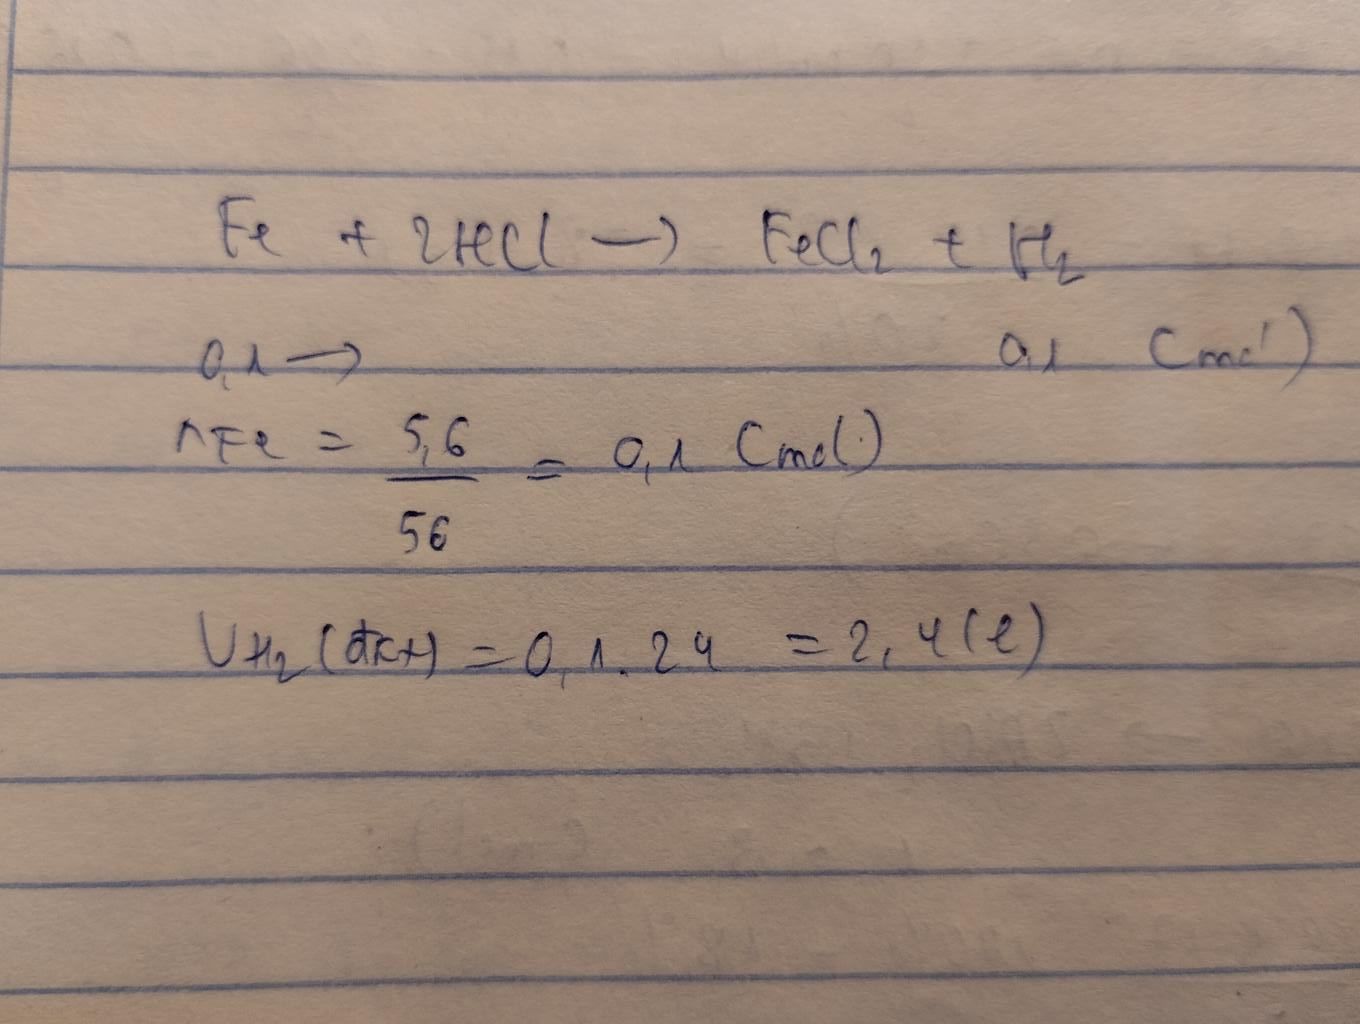 Fe + 2HCl → FeCl₂ + H₂
0,1 → 0,1 (mol)
nFe = 5,6 / 56 = 0,1 (mol)
VH₂ (đktt) = 0,1 . 24 = 2,4 (l)